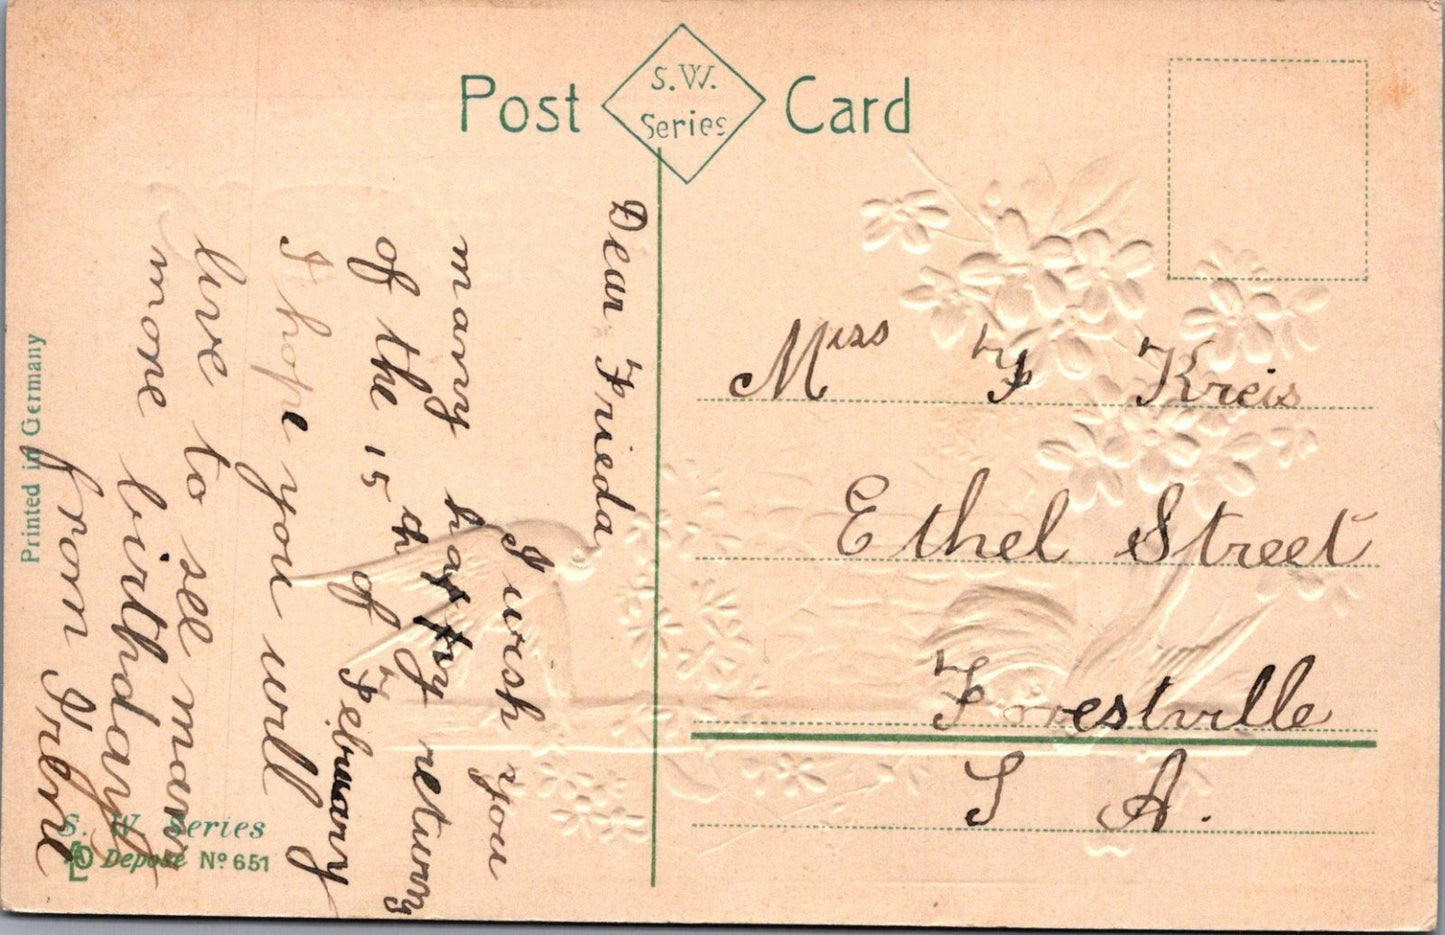 Post Card
S. W.
Series
Dear Frieda
I wish you
many happy returns
of the 15 th of February
I hope you will
live to see many
more birthdays
from
Miss F Kreis
Ethel Street
Forestville
S A.
Printed in Germany
S. W. Series
Deposé Nº 651